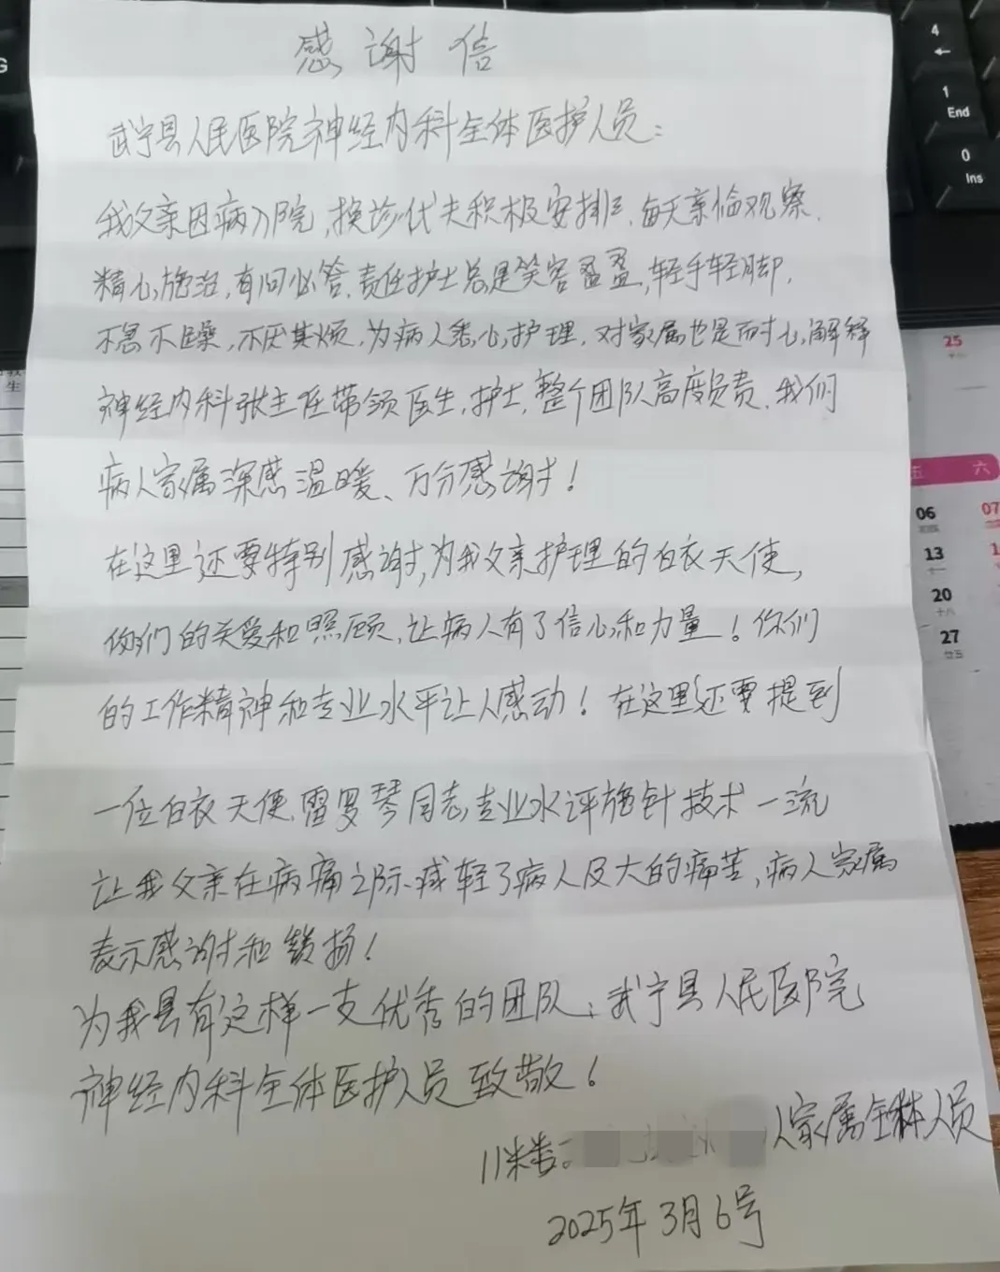 感谢信
武宁县人民医院神经内科全体医护人员:
我父亲因病入院,换诊代夫积极安排,每天亲临观察,
精心施治,有问必答,责任护士总是笑容盈盈,轻手轻脚,
不急不躁,不厌其烦,为病人悉心护理,对家属也是耐心解释
神经内科张主任带领医生,护士,整个团队高度负责,我们
病人家属深感温暖、万分感谢!
在这里还要特别感谢,为我父亲护理的白衣天使,
你们的关爱和照顾,让病人有了信心和力量!你们
的工作精神和专业水平让人感动!在这里还要提到
一位白衣天使,雷罗琴同志,专业水评施针技术一流
让我父亲在病痛之际、减轻了病人及大的痛苦,病人家属
表示感谢和赞扬!
为我县有这样一支优秀的团队,武宁县人民医院
神经内科全体医护人员致敬!
11楼 人家属全体人员
2025年3月6号
4
1
End
0
Ins
25
五 六
06 07
13
20
十八
27
廿五